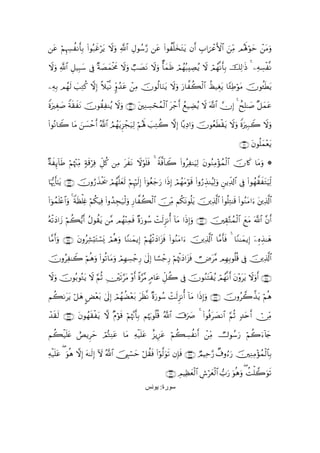 وَمَنْ حَوْلَهُم مِّنَ ٱلْأَعْرَابِ أَن يَتَخَلَّفُوا۟ عَن رَّسُولِ ٱللَّهِ وَلَا يَرْغَبُوا۟ بِأَنفُسِهِمْ عَن
نَّفْسِهِۦ ۚ ذَٰلِكَ بِأَنَّهُمْ لَا يُصِيبُهُمْ ظَمَأٌ وَلَا نَصَبٌ وَلَا مَخْمَصَةٌ فِى سَبِيلِ ٱللَّهِ وَلَا
يَطَـُٔونَ مَوْطِئًا يَغِيظُ ٱلْكُفَّارَ وَلَا يَنَالُونَ مِنْ عَدُوٍّ نَّيْلًا إِلَّا كُتِبَ لَهُم بِهِۦ
عَمَلٌ صَـٰلِحٌ ۚ إِنَّ ٱللَّهَ لَا يُضِيعُ أَجْرَ ٱلْمُحْسِنِينَ ۝ وَلَا يُنفِقُونَ نَفَقَةً صَغِيرَةً
وَلَا كَبِيرَةً وَلَا يَقْطَعُونَ وَادِيًا إِلَّا كُتِبَ لَهُمْ لِيَجْزِيَهُمُ ٱللَّهُ أَحْسَنَ مَا كَانُوا۟
يَعْمَلُونَ ۝
۞ وَمَا كَانَ ٱلْمُؤْمِنُونَ لِيَنفِرُوا۟ كَآفَّةً ۚ فَلَوْلَا نَفَرَ مِن كُلِّ فِرْقَةٍ مِّنْهُمْ طَآئِفَةٌ
لِّيَتَفَقَّهُوا۟ فِى ٱلدِّينِ وَلِيُنذِرُوا۟ قَوْمَهُمْ إِذَا رَجَعُوٓا۟ إِلَيْهِمْ لَعَلَّهُمْ يَحْذَرُونَ ۝ يَـٰٓأَيُّهَا
ٱلَّذِينَ ءَامَنُوا۟ قَـٰتِلُوا۟ ٱلَّذِينَ يَلُونَكُم مِّنَ ٱلْكُفَّارِ وَلْيَجِدُوا۟ فِيكُمْ غِلْظَةً ۚ وَٱعْلَمُوٓا۟
أَنَّ ٱللَّهَ مَعَ ٱلْمُتَّقِينَ ۝ وَإِذَا مَآ أُنزِلَتْ سُورَةٌ فَمِنْهُم مَّن يَقُولُ أَيُّكُمْ زَادَتْهُ
هَـٰذِهِۦٓ إِيمَـٰنًا ۚ فَأَمَّا ٱلَّذِينَ ءَامَنُوا۟ فَزَادَتْهُمْ إِيمَـٰنًا وَهُمْ يَسْتَبْشِرُونَ ۝ وَأَمَّا
ٱلَّذِينَ فِى قُلُوبِهِم مَّرَضٌ فَزَادَتْهُمْ رِجْسًا إِلَىٰ رِجْسِهِمْ وَمَاتُوا۟ وَهُمْ كَـٰفِرُونَ
۝ أَوَلَا يَرَوْنَ أَنَّهُمْ يُفْتَنُونَ فِى كُلِّ عَامٍ مَّرَّةً أَوْ مَرَّتَيْنِ ثُمَّ لَا يَتُوبُونَ وَلَا
هُمْ يَذَّكَّرُونَ ۝ وَإِذَا مَآ أُنزِلَتْ سُورَةٌ نَّظَرَ بَعْضُهُمْ إِلَىٰ بَعْضٍ هَلْ يَرَىٰكُم
مِّنْ أَحَدٍ ثُمَّ ٱنصَرَفُوا۟ ۚ صَرَفَ ٱللَّهُ قُلُوبَهُم بِأَنَّهُمْ قَوْمٌ لَّا يَفْقَهُونَ ۝ لَقَدْ
جَآءَكُمْ رَسُولٌ مِّنْ أَنفُسِكُمْ عَزِيزٌ عَلَيْهِ مَا عَنِتُّمْ حَرِيصٌ عَلَيْكُم
بِٱلْمُؤْمِنِينَ رَءُوفٌ رَّحِيمٌ ۝ فَإِن تَوَلَّوْا۟ فَقُلْ حَسْبِىَ ٱللَّهُ لَآ إِلَـٰهَ إِلَّا هُوَ ۖ عَلَيْهِ
تَوَكَّلْتُ ۖ وَهُوَ رَبُّ ٱلْعَرْشِ ٱلْعَظِيمِ ۝
سورة: يونس